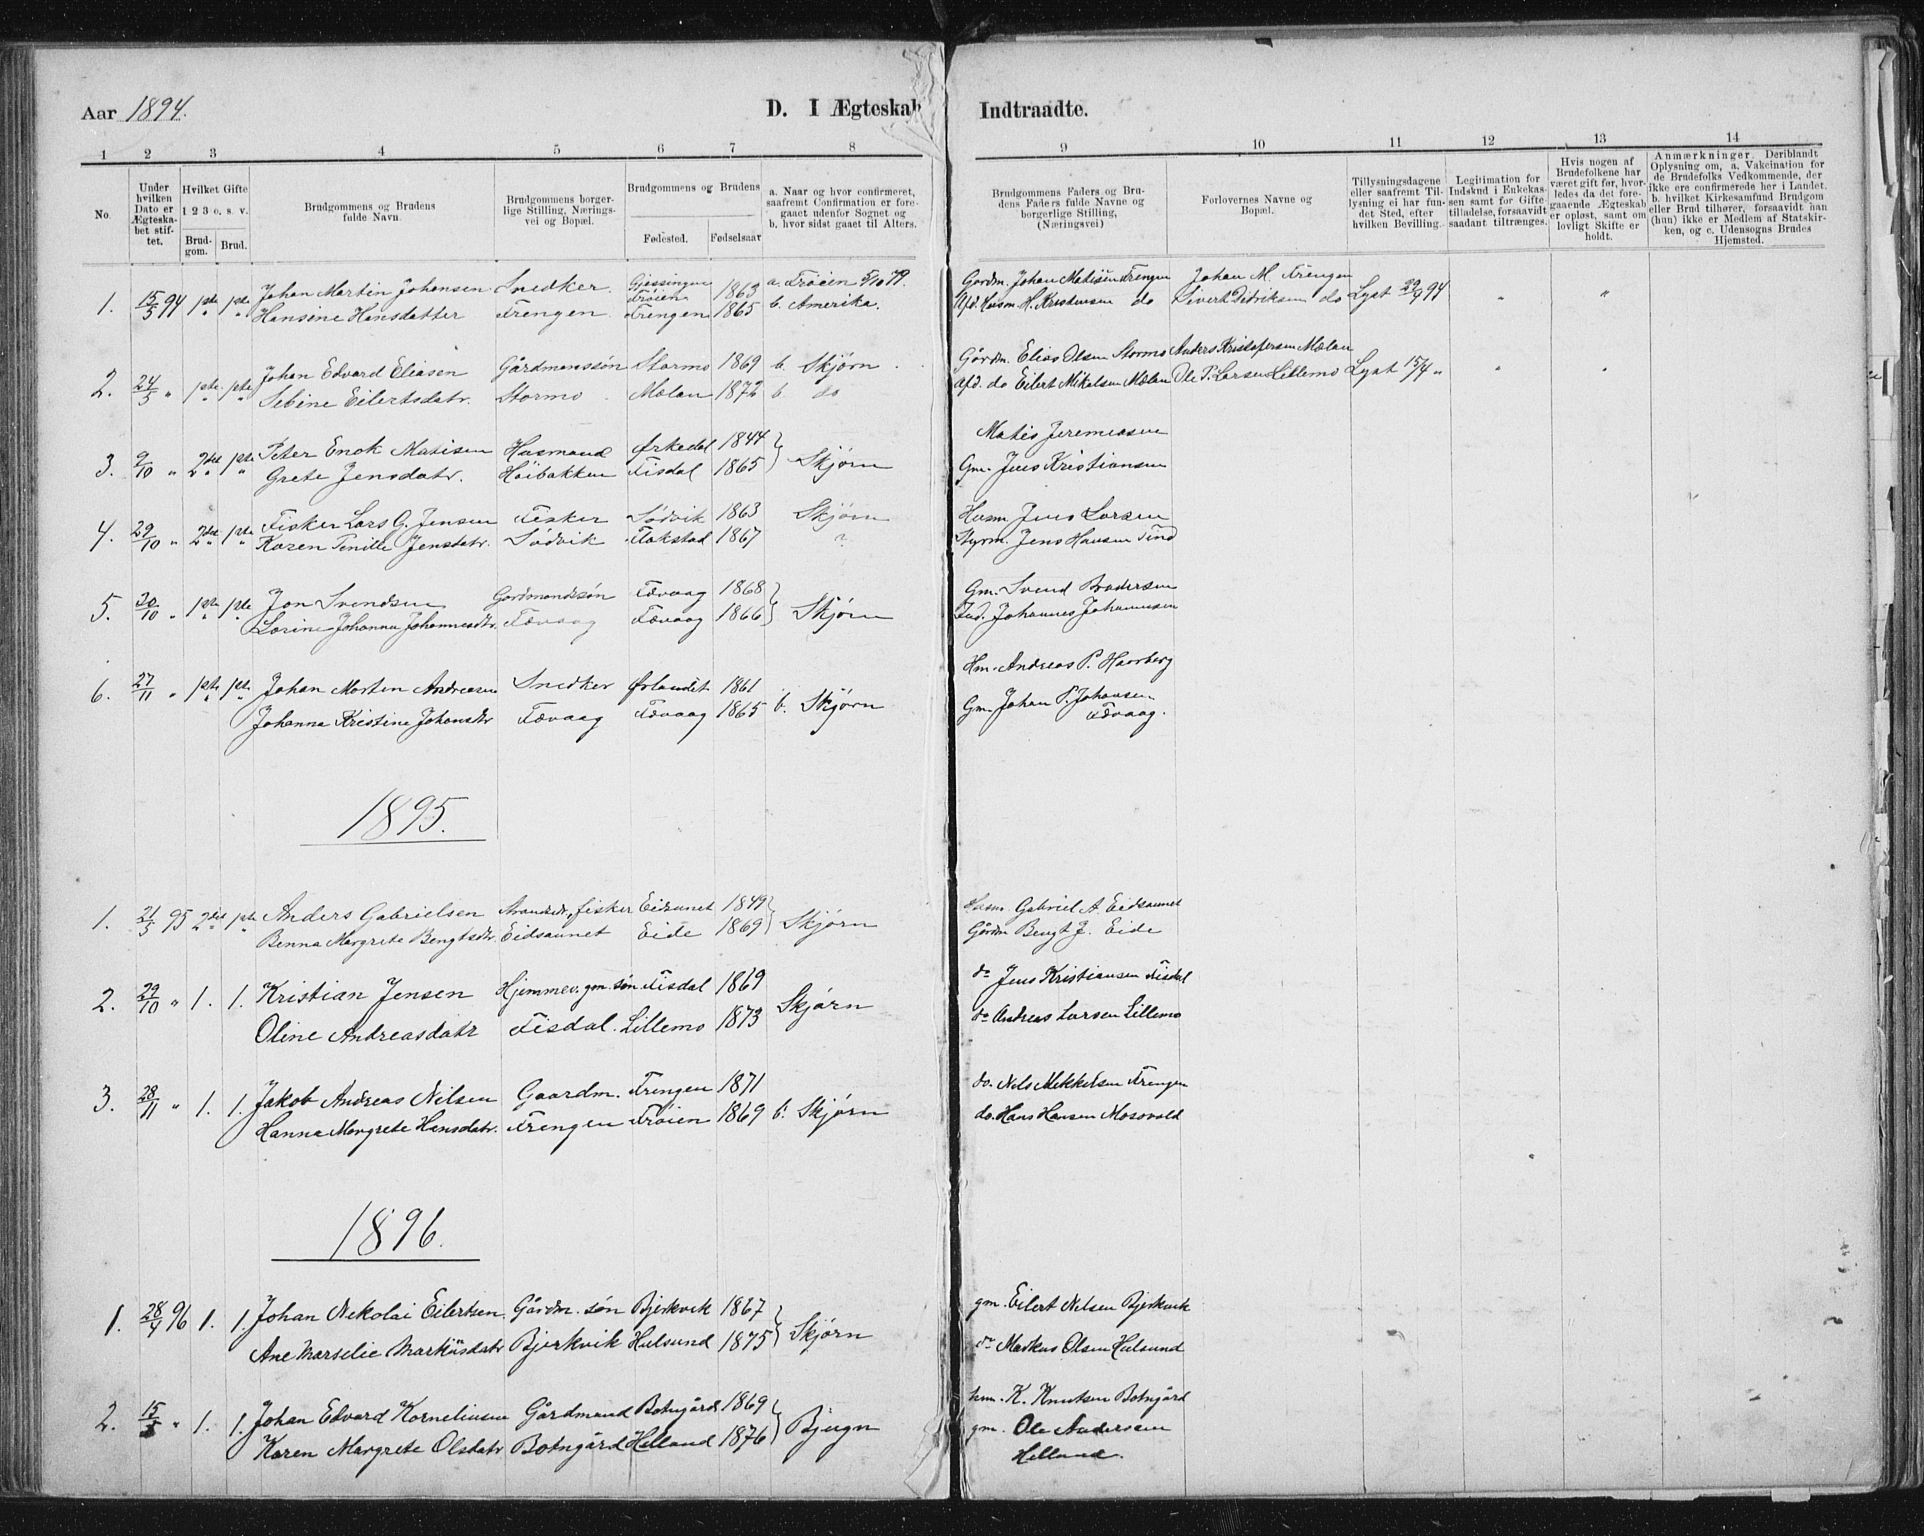 Aar 1894.
D. I Ægteskab Indtraadte.
1 2 3 4 5 6 7 8 9 10 11 12 13 14
No.
Under hvilken Dato er Ægteskabet stiftet.
Hvilket Gifte
1 2 3 o. s. v.
Brudgom.
Brud.
Brudgommens og Brudens fulde Navn.
Brudgommens borgerlige Stilling, Næringsvei og Bopæl.
Brudgommens og Brudens
Fødested.
Fødselsaar
a. Naar og hvor confirmeret, saafremt Confirmation er foregaaet udenfor Sognet og b. hvor sidst gaaet til Alters.
Brudgommens Faders og Brudens Faders fulde Navne og borgerlige Stilling, (Næringsvei)
Forlovernes Navne og Bopæl.
Tillysningsdagene eller saafremt Tillysning ei har fundet Sted, efter hvilken Bevilling.
Legitimation for Indskud i Enkekassen samt for Giftetilladelse, forsaavidt saadant tiltrænges.
Hvis nogen af Brudefolkene har været gift før, hvorledes da det foregaaende Ægteskab er opløst, samt om lovligt Skifte er holdt.
Anmærkninger. Deriblandt Oplysning om, a. Vakcination for de Brudefolks Vedkommende, der ikke ere confirmerede her i Landet. b. hvilket Kirkesamfund Brudgom eller Brud tilhører, forsaavidt han (hun) ikke er Medlem af Statskirken, og c. Udensogns Brudes Hjemsted.
1. 15/5 94 1ste 1ste Johan Martin Johansen Snedker Gjessingen Frøien 1863 a. Frøien 5/10 79. Gordm. Johan Matisen Frengen Johan M. Frengen
Hansine Hansdatter Frengen Frengen 1865 b. Amerika. Afd. Husm. H. Kristensen do Sivert Didriksen do Lyst 29/4 94 " "
2. 24/5 " 1ste 1ste Johan Edvard Eliasen Gårdmanssøn Stormo 1869 b. Skjørn Gårdm. Elias Olsen Stormo Anders Kristofersen Mælan
Sebine Eilertsdatr. Stormo Mælan 1872 b. do Afd. do Eilert Mikalsen Mælan Ole P. Larsen Lillemo Lyst 15/4 " " "
3. 9/10 " 2det 1ste Peter Enok Matisen Husmand Ørkedal 1844 Matis Jeremiasen
Grete Jensdatr. Høibakken Fisdal 1865 Skjørn Gm. Jens Kristiansen
4. 29/10 " 2det 1ste Fisker Lars G. Jensen Fisker Sødvik 1863 Skjørn Husm. Jens Larsen
Karen Penille Jensdatr. Sødvik Flakstad 1867 ? Styrm. Jens Hansen Tind
5. 30/10 " 1ste 1ste Jon Svendsen Gordmandssøn Fævaag 1868 Gm. Svend Brodersen
Lorine Johanna Johannesdtr. Fævaag Fævaag 1866 Skjørn Ind. Johannes Johannesen
6. 27/11 " 1ste 1ste Johan Morten Andreasen Snedker Ørlandet 1861 Hm. Andreas P. Haarberg
Johanna Kristine Johansdtr Fævaag Fævaag 1865 b. Skjørn Gm. Johan P. Johansen
Fævaag.
1895.
1. 21/5 95 2det 1ste Anders Gabrielsen fisker Eidsaunet 1849 Husm. Gabriel A Eidsaunet
Benna Margrete Bengtsdtr. Eidsaunet Eide 1869 Skjørn Gårdm Bengt J. Eide
2. 29/10 " 1. 1. Kristian Jensen Hjemmev. gm. søn Fisdal 1869 do Jens Kristiansen Fisdal
Oline Andreasdatr Fisdal. Lillemo 1873 Skjørn do Andreas Larsen Lillemo
3. 28/11 " 1. 1. Jakob Andreas Nilsen Gaardm. Frengen 1871 do. Nils Mikkelsen Frengen
Hanna Margrete Hansdatr. Frengen Frøien 1869 b. Skjørn do. Hans Hansen Mosovald
1896.
1. 28/4 96 1. 1. Johan Nekolai Eilertsen Gårdm. søn Bjerkvik 1867 gm. Eilert Nilsen Bjerkvik
Ane Marselie Markusdatr Bjerkvik Hulsund 1875 Skjørn do Markus Olsen Hulsund
2. 15/5 " 1. 1. Johan Edvard Korneliusen Gårdmand Botngård 1869 hm. K. Knutsen Botngård
Karen Margrete Olsdatr Botngård Helland 1876 Bjugn gm. Ole Andersen
Helland.